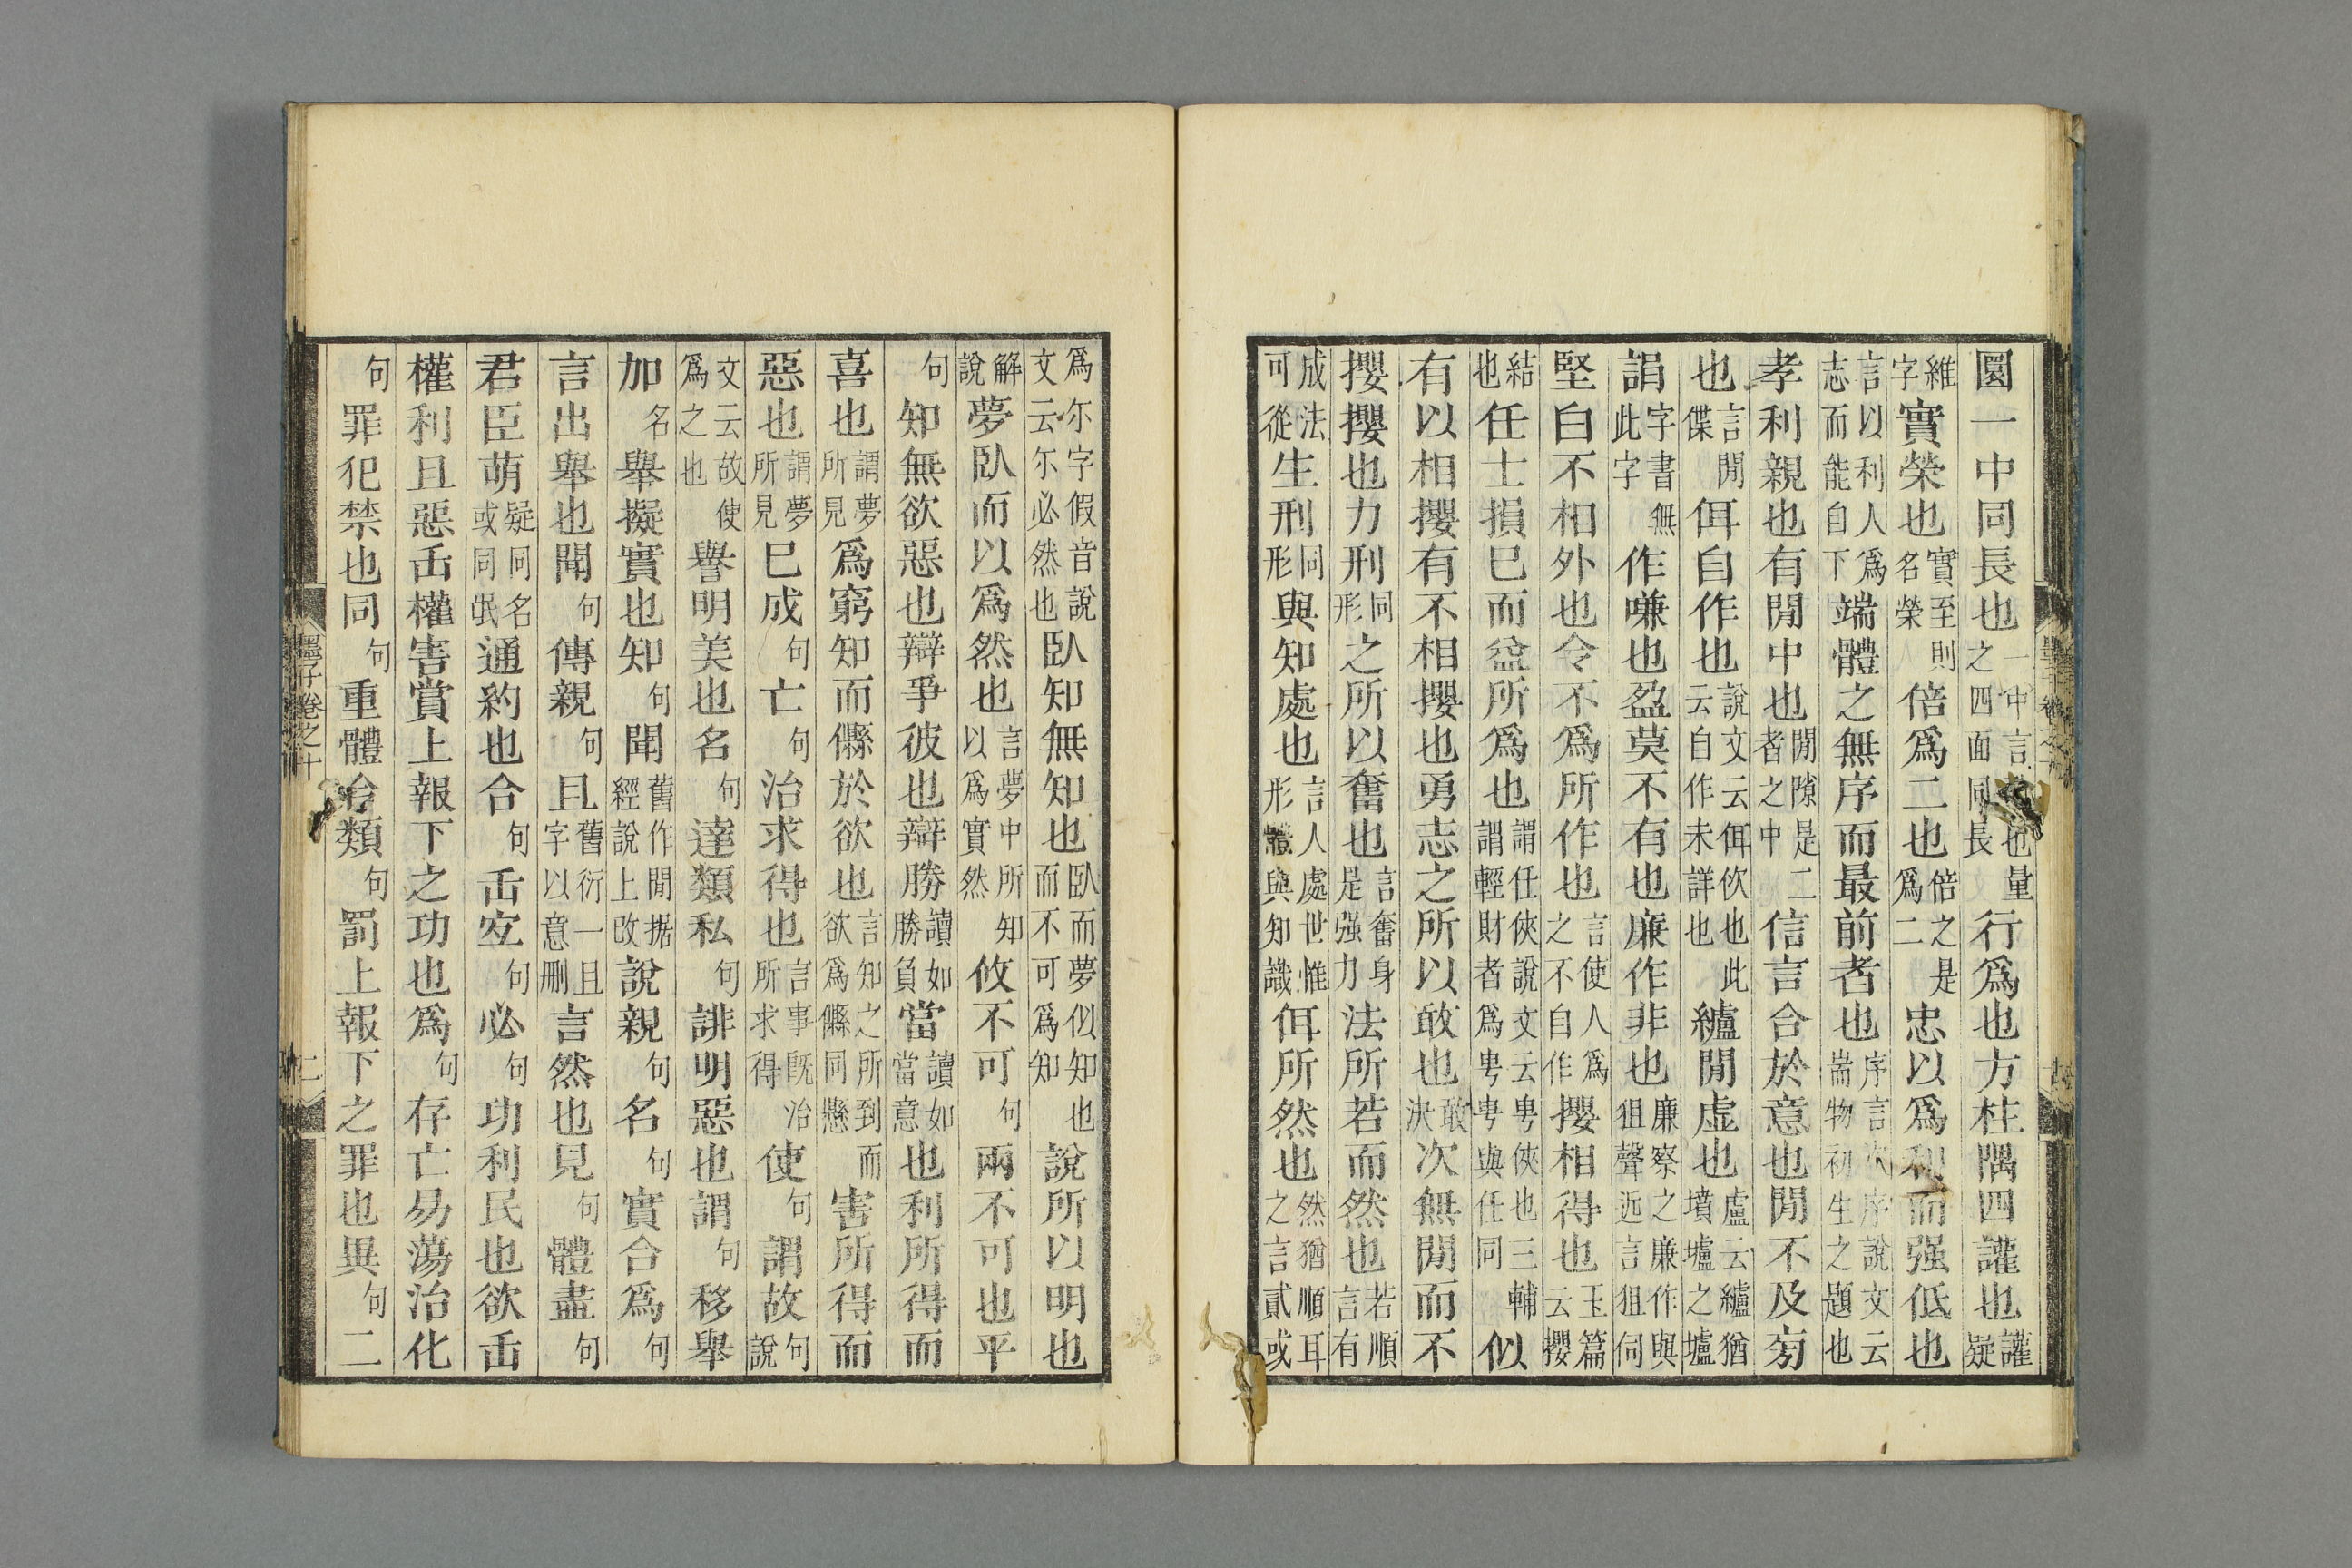 圜一中同長也一中言也量之四面同長行爲也方柱隅四讙也讙疑
維字實榮也實至則名榮倍爲二也倍之是爲二忠以爲利而强低也
言以利人爲志而能自下端體之無序而最前者也序言次序說文云耑物初生之題也
孝利親也有閒中也閒隙是二者之中信言合於意也閒不及旁
也言閒偞佴自作也說文云佴佽也此云自作未詳也纑閒虛也盧云纑猶墳壚之壚
字書無此字作嗛也盈莫不有也廉作非也廉察之廉作與狙聲近言狙伺
堅白不相外也令不爲所作也言使人爲之不自作攖相得也玉篇云攖
結也任士損已而益所爲也謂任俠說文云甹俠也三輔謂輕財者爲甹甹與任同似
有以相攖有不相攖也勇志之所以敢也敢決次無閒而不
攖攖也力刑同形之所以奮也言奮身是强力法所若而然也若順言有
成法可從生刑同形與知處也言人處世惟形體與知識佴所然也然猶順耳之言貳或
爲尒字假音說文云尒必然也臥知無知也臥而夢似知也而不可爲知說所以明也
解說夢臥而以爲然也言夢中所知以爲實然攸不可句兩不可也平
句知無欲惡也辯爭彼也辯勝讀如勝負當讀如當意也利所得而
喜也謂夢所見爲窮知而縣於欲也言知之所到而欲爲縣同懸害所得而
惡也謂夢所見巳成句亡句治求得也言事既治所求得使句謂故句說
文云故使爲之也譽明美也名句達類私句誹明惡也謂句移舉
加名舉擬實也知句聞舊作閒据經說上改說親句名句實合爲句
言出舉也聞句傳親句且舊衍一且字以意刪言然也見句體盡句
君臣萌疑同名或同氓通約也合句缶宐句必句功利民也欲缶
權利且惡缶權害賞上報下之功也爲句存亡易蕩治化
句罪犯禁也同句重體合類句罰上報下之罪也異句二
墨子卷之十
二